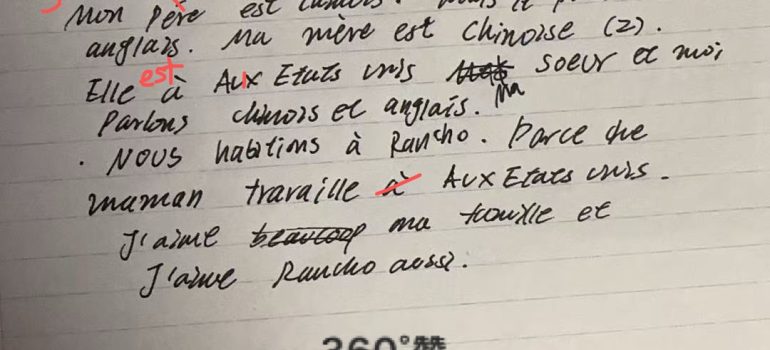 Mon père est
anglais. Ma mère est chinoise (2).
Elle est à Aux Etats unis soeur et moi
Parlons chinois et anglais. Ma
. NOUS habitions à Rancho. Parce que
maman travaille à Aux Etats unis.
J'aime beaucoup ma famille et
J'aime Rancho aussi.
360°赞